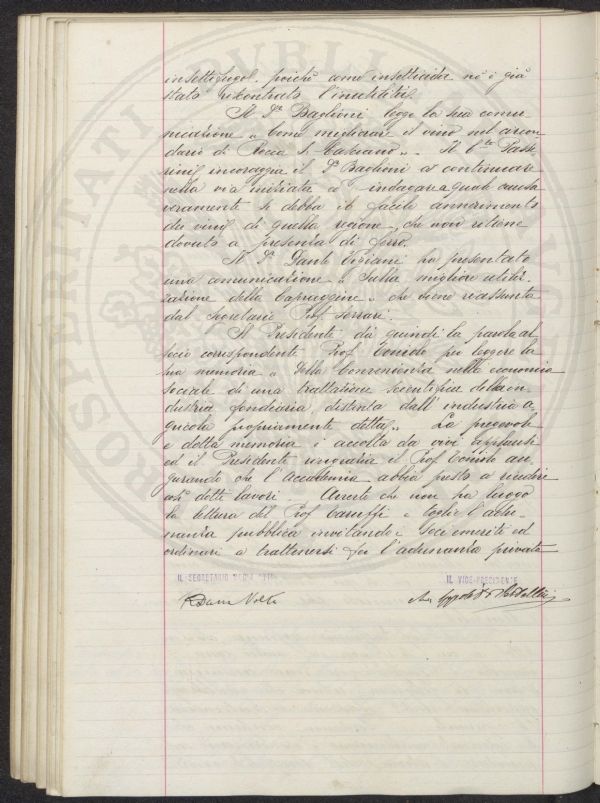 insettifughi, poichè come insetticida ne è già
stato riscontrato l'inutilità.
Il Dr Baglioni legge la sua comu-
nicazione "Come migliorare il vino nel circon
dario di Rocca S. Casciano". Il Cte Passe
rini incoraggia il Dr Baglioni a continuare
nella via iniziata e indagare a quale causa
veramente si debba il facile annerimento
dei vini di quella regione, che non ritiene
dovuto a presenza di ferro.
Il Dr Dante Viviani ha presentato
una comunicazione "Sulla migliore utiliz-
zazione della Capraggine" che viene riassunta
dal Segretario Prof. Ferrari.
Il Presidente dà quindi la parola al
socio corrispondente Prof. Toniolo per leggere la
sua memoria "Della Convenienza nella economia
sociale di una trattazione scientifica della in
dustria fondiaria, distinta dall'industria a
gricola propriamente detta". La pregevole
e dotta memoria è accolta da vivi applausi
ed il Presidente ringrazia il Prof Toniolo au
gurando che l'Accademia abbia presto a riudire
così dotti lavori. Avverte che non ha luogo
la lettura del Prof Caruffi e toglie l'adu-
nanza pubblica invitando i Soci emeriti ed
ordinari a trattenersi per l'adunanza privata
IL SEGRETARIO DEGLI ATTI
IL VICE-PRESIDENTE